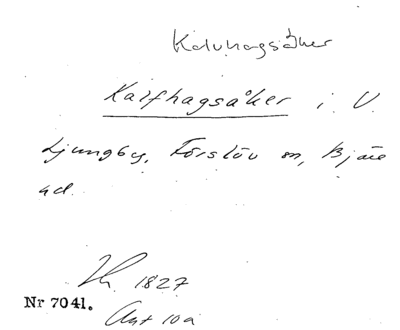 Kalvhagsåker
Kalfhagsåker i V.
Ljungby, Förslöv sn, Bjäre
hd.
1827
Nr 7041.
Akt 10a